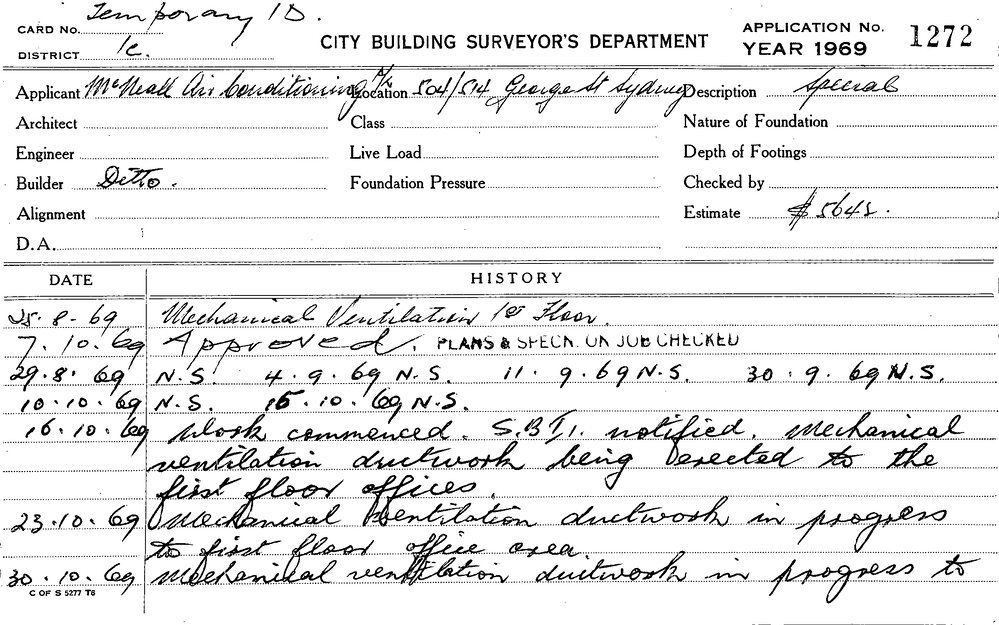 CARD No. Temporary 1D.
DISTRICT 1c.
CITY BUILDING SURVEYOR'S DEPARTMENT
APPLICATION No. 1272
YEAR 1969
Applicant McNeall Air Conditioning P/L Location 504/514 George St Sydney Description Special
Architect Class Nature of Foundation
Engineer Live Load Depth of Footings
Builder Ditto. Foundation Pressure Checked by
Alignment Estimate $5645.
D.A.
DATE HISTORY
25.8-69 Mechanical Ventilation 1st Floor.
7.10.69 Approved. PLANS & SPECN. ON JOB CHECKED
29.8.69 N.S. 4.9.69 N.S. 11.9.69 N.S. 30.9.69 N.S.
10.10.69 N.S. 15.10.69 N.S.
16.10.69 Work commenced. S.B.I. notified. Mechanical
ventilation ductwork being erected to the
first floor offices.
23.10.69 Mechanical Ventilation ductwork in progress
to first floor office area.
30.10.69 Mechanical ventilation ductwork in progress to
C OF S 5277 T6